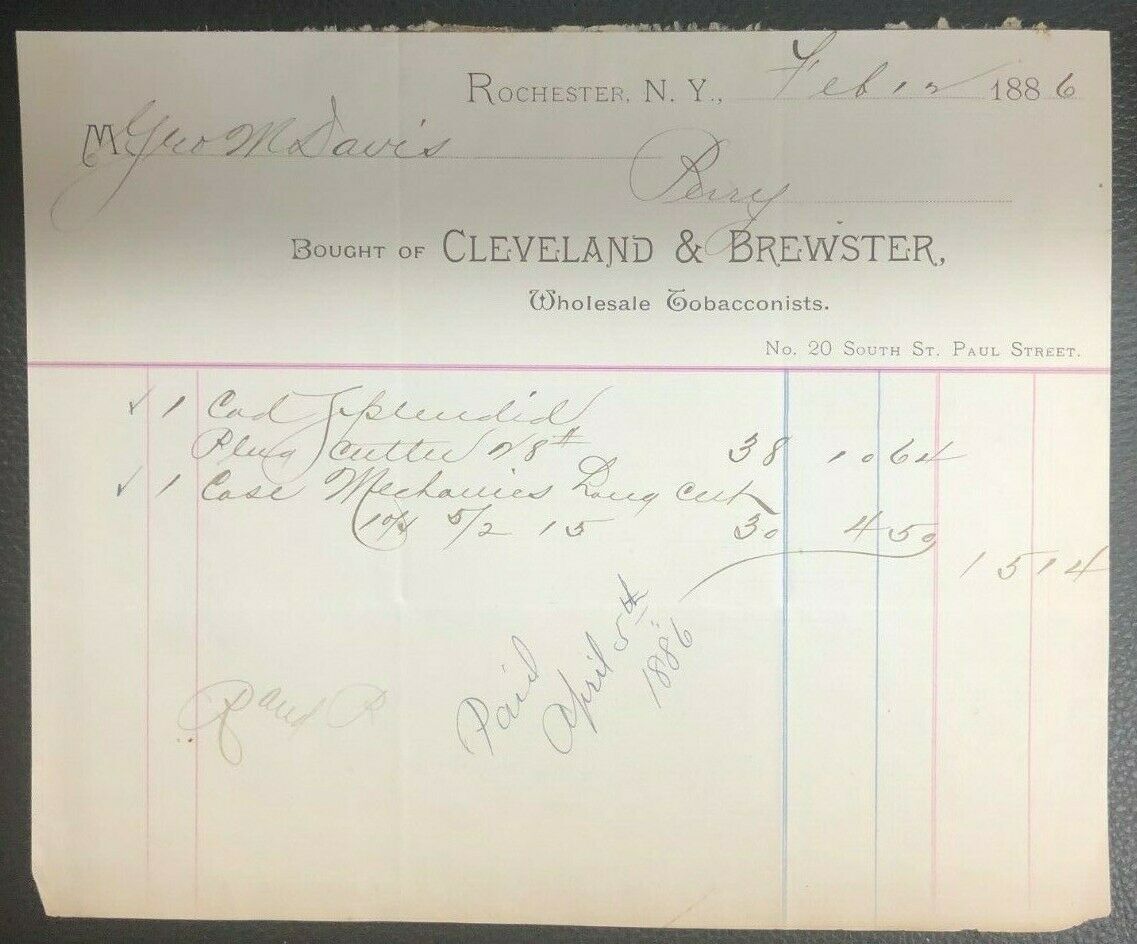 Rochester, N. Y., Feb 12 1886
M Geo M Davis
Perry
Bought of Cleveland & Brewster,
Wholesale Tobacconists.
No. 20 South St. Paul Street.
✓ 1 Cad Splendid
Plug Cutter 28# 38 10 64
✓ 1 Case Mechanics Long Cut
5/2 15 30 4 50
15 14
Paid
April 5th
1886
P and P